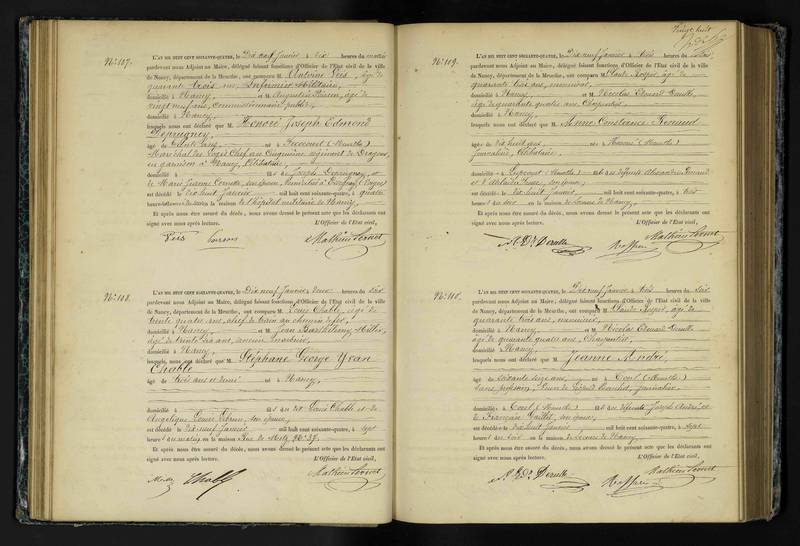 N.° 107.
L'AN MIL HUIT CENT SOIXANTE-QUATRE, le Dix neuf Janvier à dix heures du matin
pardevant nous Adjoint au Maire, délégué faisant fonctions d'Officier de l'Etat civil de la ville
de Nancy, département de la Meurthe, ont comparu M. Antoine âgé de
quarante trois ans, Infirmier Militaire,
domicilié à Nancy, et M. Augustin âgé de
vingt neuf ans, Commissionnaire public,
domicilié à Nancy,
lesquels nous ont déclaré que M. Honoré Joseph Edmond
âgé de trente ans, né à (Meurthe)
Maréchal des Logis Chef au Cinquième régiment de Dragons,
en garnison à Nancy, Célibataire,
domicilié à fils de Joseph et
de Marie Jeanne son épouse, domiciliés à (Vosges)
est décédé le dix huit Janvier mil huit cent soixante-quatre, à quatre
heures du soir, en la maison de l'hôpital militaire de Nancy,
Et après nous être assuré du décès, nous avons dressé le présent acte que les déclarants ont
signé avec nous après lecture. L'Officier de l'Etat civil,
N.° 108.
L'AN MIL HUIT CENT SOIXANTE-QUATRE, le Dix neuf Janvier à deux heures du soir
pardevant nous Adjoint au Maire, délégué faisant fonctions d'Officier de l'Etat civil de la ville
de Nancy, département de la Meurthe, ont comparu M. Louis Chable, âgé de
trente quatre ans, chef de train au chemin de fer,
domicilié à Nancy, et M. Jean Barthélemy
âgé de trente six ans,
domicilié à Nancy,
lesquels nous ont déclaré que M. Stéphane George Jean
Chable
âgé de trois ans et demi né à Nancy,
domicilié à fils du dit Louis Chable et de
Angélique Louise son épouse,
est décédé le dix neuf Janvier mil huit cent soixante-quatre, à sept
heures du matin, en la maison Rue de Metz, N° 37.
Et après nous être assuré du décès, nous avons dressé le présent acte que les déclarants ont
signé avec nous après lecture. L'Officier de l'Etat civil,
Chable
Vingt huit
N.° 109.
L'AN MIL HUIT CENT SOIXANTE-QUATRE, le Dix neuf Janvier à trois heures du soir
pardevant nous Adjoint au Maire, délégué faisant fonctions d'Officier de l'Etat civil de la ville
de Nancy, département de la Meurthe, ont comparu M. Claude âgé de
quarante trois ans, menuisier,
domicilié à Nancy, et M. Nicolas Edouard
âgé de quarante quatre ans, Charpentier,
domicilié à Nancy,
lesquels nous ont déclaré que M. Anne Constance Renaud
âgée de dix huit ans née à (Meurthe)
Journalière, Célibataire,
domiciliée à (Meurthe) fille de défunts Alexandre Renaud
et son épouse,
est décédée le dix huit Janvier mil huit cent soixante-quatre, à trois
heures du soir en la maison de Secours de Nancy,
Et après nous être assuré du décès, nous avons dressé le présent acte que les déclarants ont
signé avec nous après lecture. L'Officier de l'Etat civil,
N.° 110.
L'AN MIL HUIT CENT SOIXANTE-QUATRE, le Dix neuf Janvier à trois heures du soir
pardevant nous Adjoint au Maire, délégué faisant fonctions d'Officier de l'Etat civil de la ville
de Nancy, département de la Meurthe, ont comparu M. Claude âgé de
quarante trois ans, menuisier,
domicilié à Nancy, et M. Nicolas Edouard
âgé de quarante quatre ans, Charpentier,
domicilié à Nancy,
lesquels nous ont déclaré que M. Jeanne André,
âgée de soixante seize ans, née à Toul (Meurthe)
sans profession, Veuve de journalier
domiciliée à Toul (Meurthe) fille de défunts Joseph André et
de Françoise son épouse,
est décédée le dix huit Janvier mil huit cent soixante-quatre, à sept
heures du soir en la maison de Secours de Nancy,
Et après nous être assuré du décès, nous avons dressé le présent acte que les déclarants ont
signé avec nous après lecture. L'Officier de l'Etat civil,